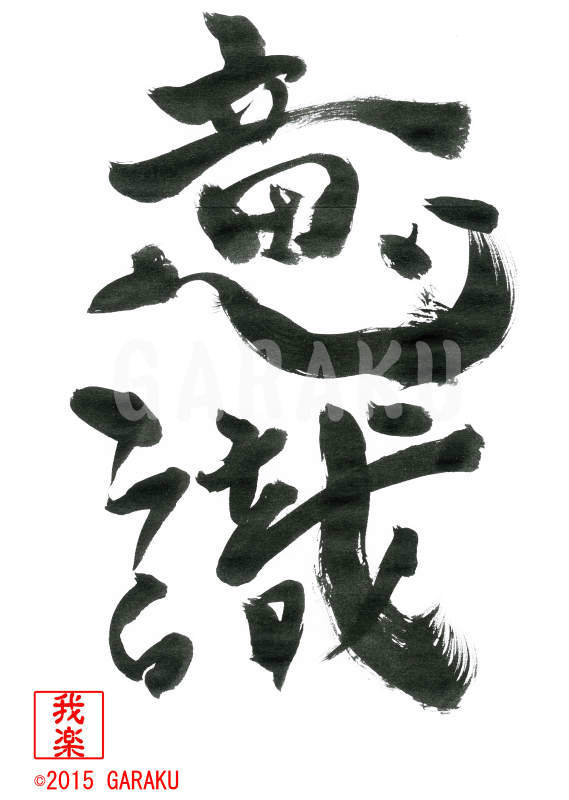 意
識
GARAKU
我
楽
©2015 GARAKU